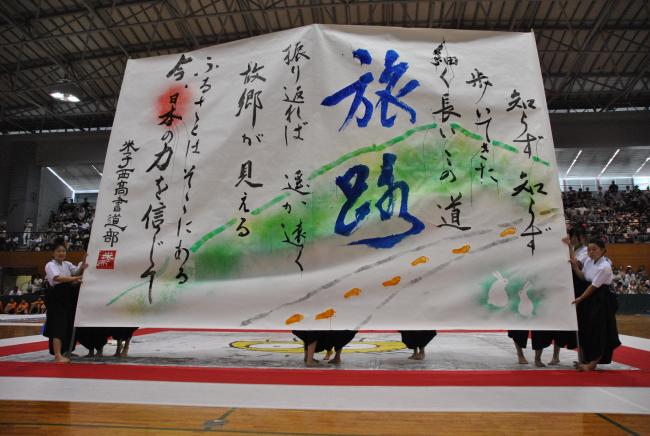 知らず 知らず
歩いてきた
細く長いこの道
旅路
振り返れば 遥か遠く
故郷が見える
ふるさとは そこにある
今、日本の力を信じて
米子西高書道部